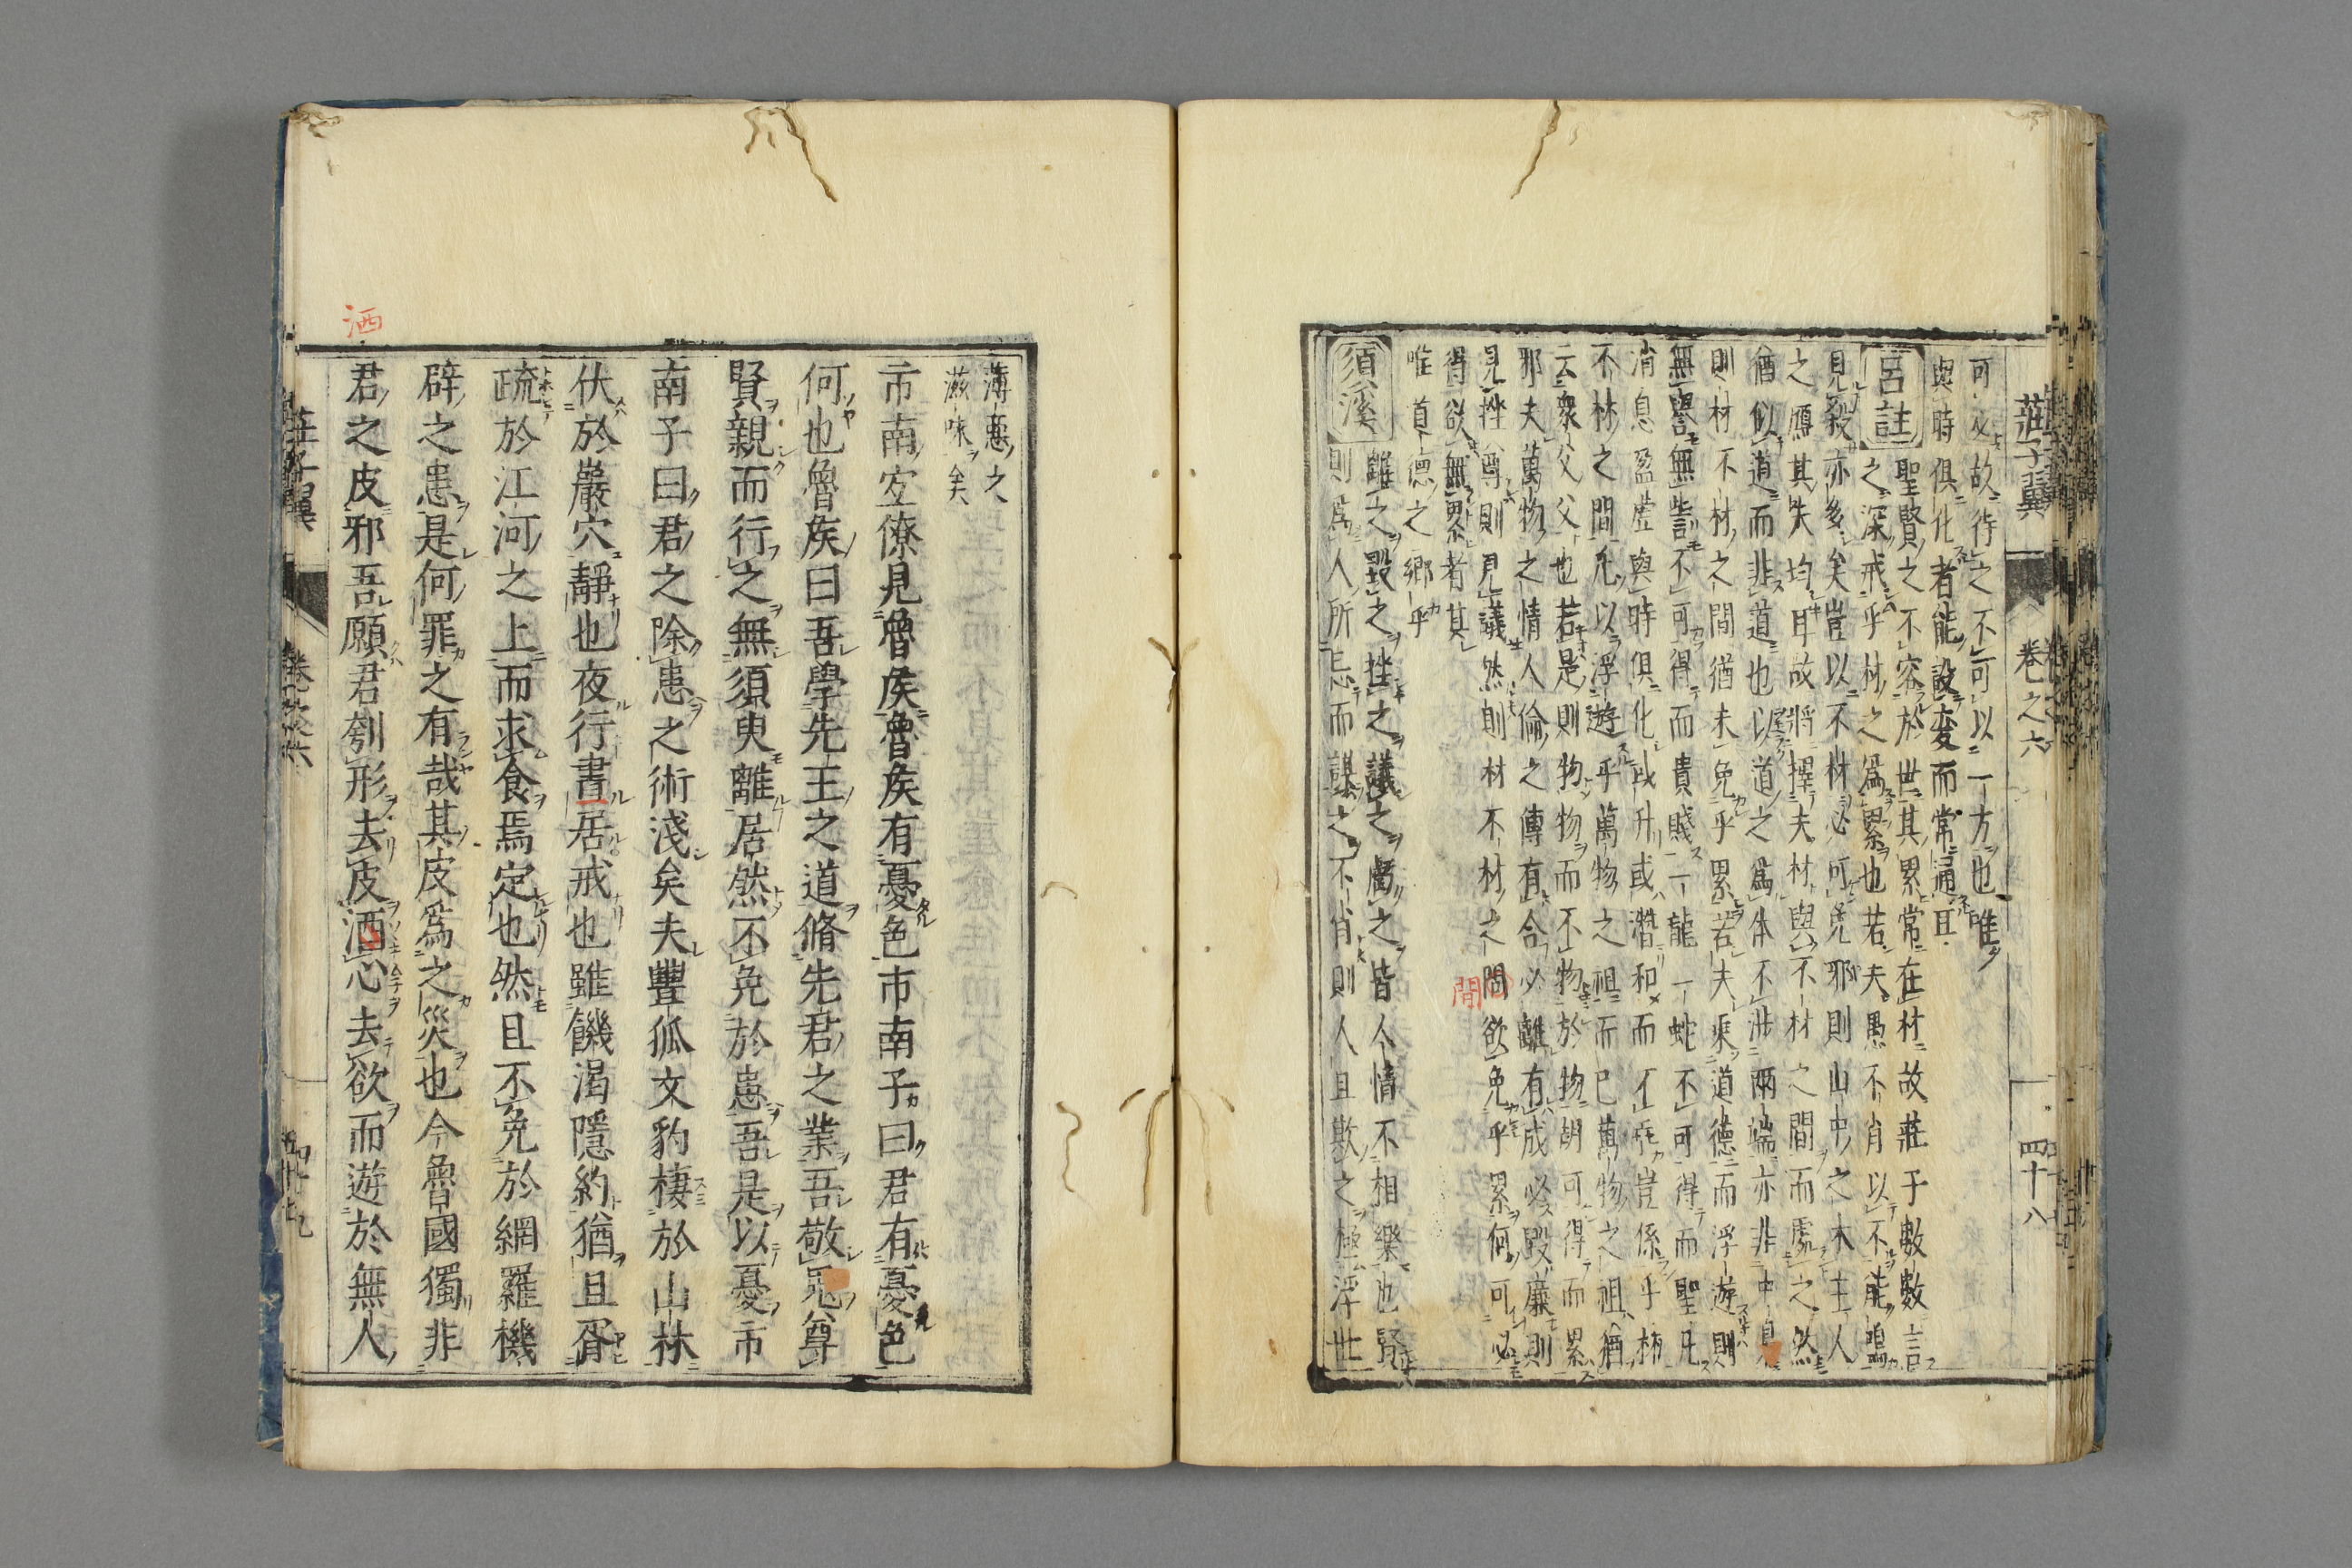 莊子翼 卷之六 四十八
可必故待之不可以一方也唯
與時俱化者能設变而常通耳
呂註 聖賢之不容於世其累常在材故莊子數數言
之深戒乎材之爲累也若夫愚不肖以不能鳴
見殺亦多矣豈以不材必可免邪則山中之木主人
之鴈其失均耳故將擇夫材與不材之間而處之然
猶似道而非道也以道之爲体不涉兩端亦非中
則材不材之間猶未免乎累若夫乘道德而浮遊則
無譽無訾不可得而貴賤一龍一蛇不可得而聖凡
消息盈虛與時俱化或升或潛和而不乖豈係乎材
不材之間凡以浮遊乎萬物之祖而已萬物之祖猶
云衆父父也若是則物物而不物於物胡可得而累
邪夫萬物之情人倫之傳有合必離有成必毀廉則
見挫尊則見議然則材不材之間欲免乎累何可必
間
得欲無累者其
唯道德之鄉乎
須溪 離之毀之挫之議之虧之皆人情不相樂也賢
則爲人所忌而謀之不肖則人且欺之極浮世
薄惡之
滋味矣
市南宜僚見魯侯魯侯有憂色市南子曰君有憂色
何也魯侯曰吾學先王之道脩先君之業吾敬鬼尊
賢親而行之無須臾離居然不免於患吾是以憂市
南子曰君之除患之術淺矣夫豐狐文豹棲於山林
伏於巖穴靜也夜行晝居戒也雖饑渴隱約猶且胥
疏於江河之上而求食焉定也然且不免於網羅機
辟之患是何罪之有哉其皮爲之災也今魯國獨非
君之皮邪吾願君刳形去皮洒心去欲而遊於無人
洒
莊子翼 卷之六